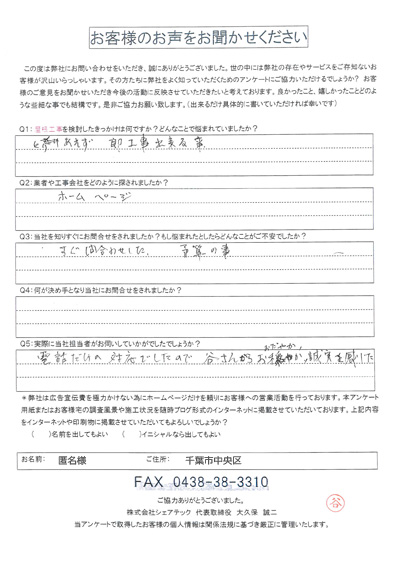 お客様のお声をお聞かせください
この度は弊社にお問い合わせをいただき、誠にありがとうございました。世の中には弊社の存在やサービスをご存知ないお
客様が沢山いらっしゃいます。その方たちに弊社をよく知っていただくためのアンケートにご協力いただけるでしょうか？お客
様のご意見をお聞かせいただき今後の活動に反映させていただきたいと考えております。良かったこと、嬉しかったことどのよ
うな些細な事でも結構です。是非ご協力お願い致します。（出来るだけ具体的に書いていただければ幸いです）
Q1：屋根工事を検討したきっかけは何ですか？どんなことで悩まれていましたか？
あせず 即工事出来る事
Q2：業者や工事会社をどのように探されましたか？
ホームページ
Q3：当社を知りすぐにお問合せをされましたか？もし悩まれたとしたらどんなことがご不安でしたか？
すぐ問合わせした、 予算の事
Q4：何が決め手となり当社にお問合せをされましたか？
Q5：実際に当社担当者がお伺いしていかがでしたでしょうか？
おだやか
電話だけの対応でしたので 谷さんが 誠実を感じた
＊弊社は広告宣伝費を極力かけない為にホームページだけを頼りにお客様への営業活動を行っております。本アンケート
用紙またはお客様宅の調査風景や施工状況を随時ブログ形式のインターネットに掲載させていただいております。上記内容
をインターネットや印刷物に掲載させていただいてもよろしいでしょうか？
（　）名前を出してもよい　（　）イニシャルなら出してもよい
お名前： 匿名様 ご住所： 千葉市中央区
FAX 0438-38-3310
ご協力ありがとうございました。
株式会社シェアテック 代表取締役 大久保 誠二
谷
当アンケートで取得したお客様の個人情報は関係法規に基づき厳正に管理いたします。